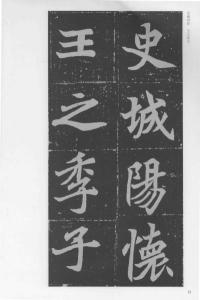 史城陽懷
王之季子